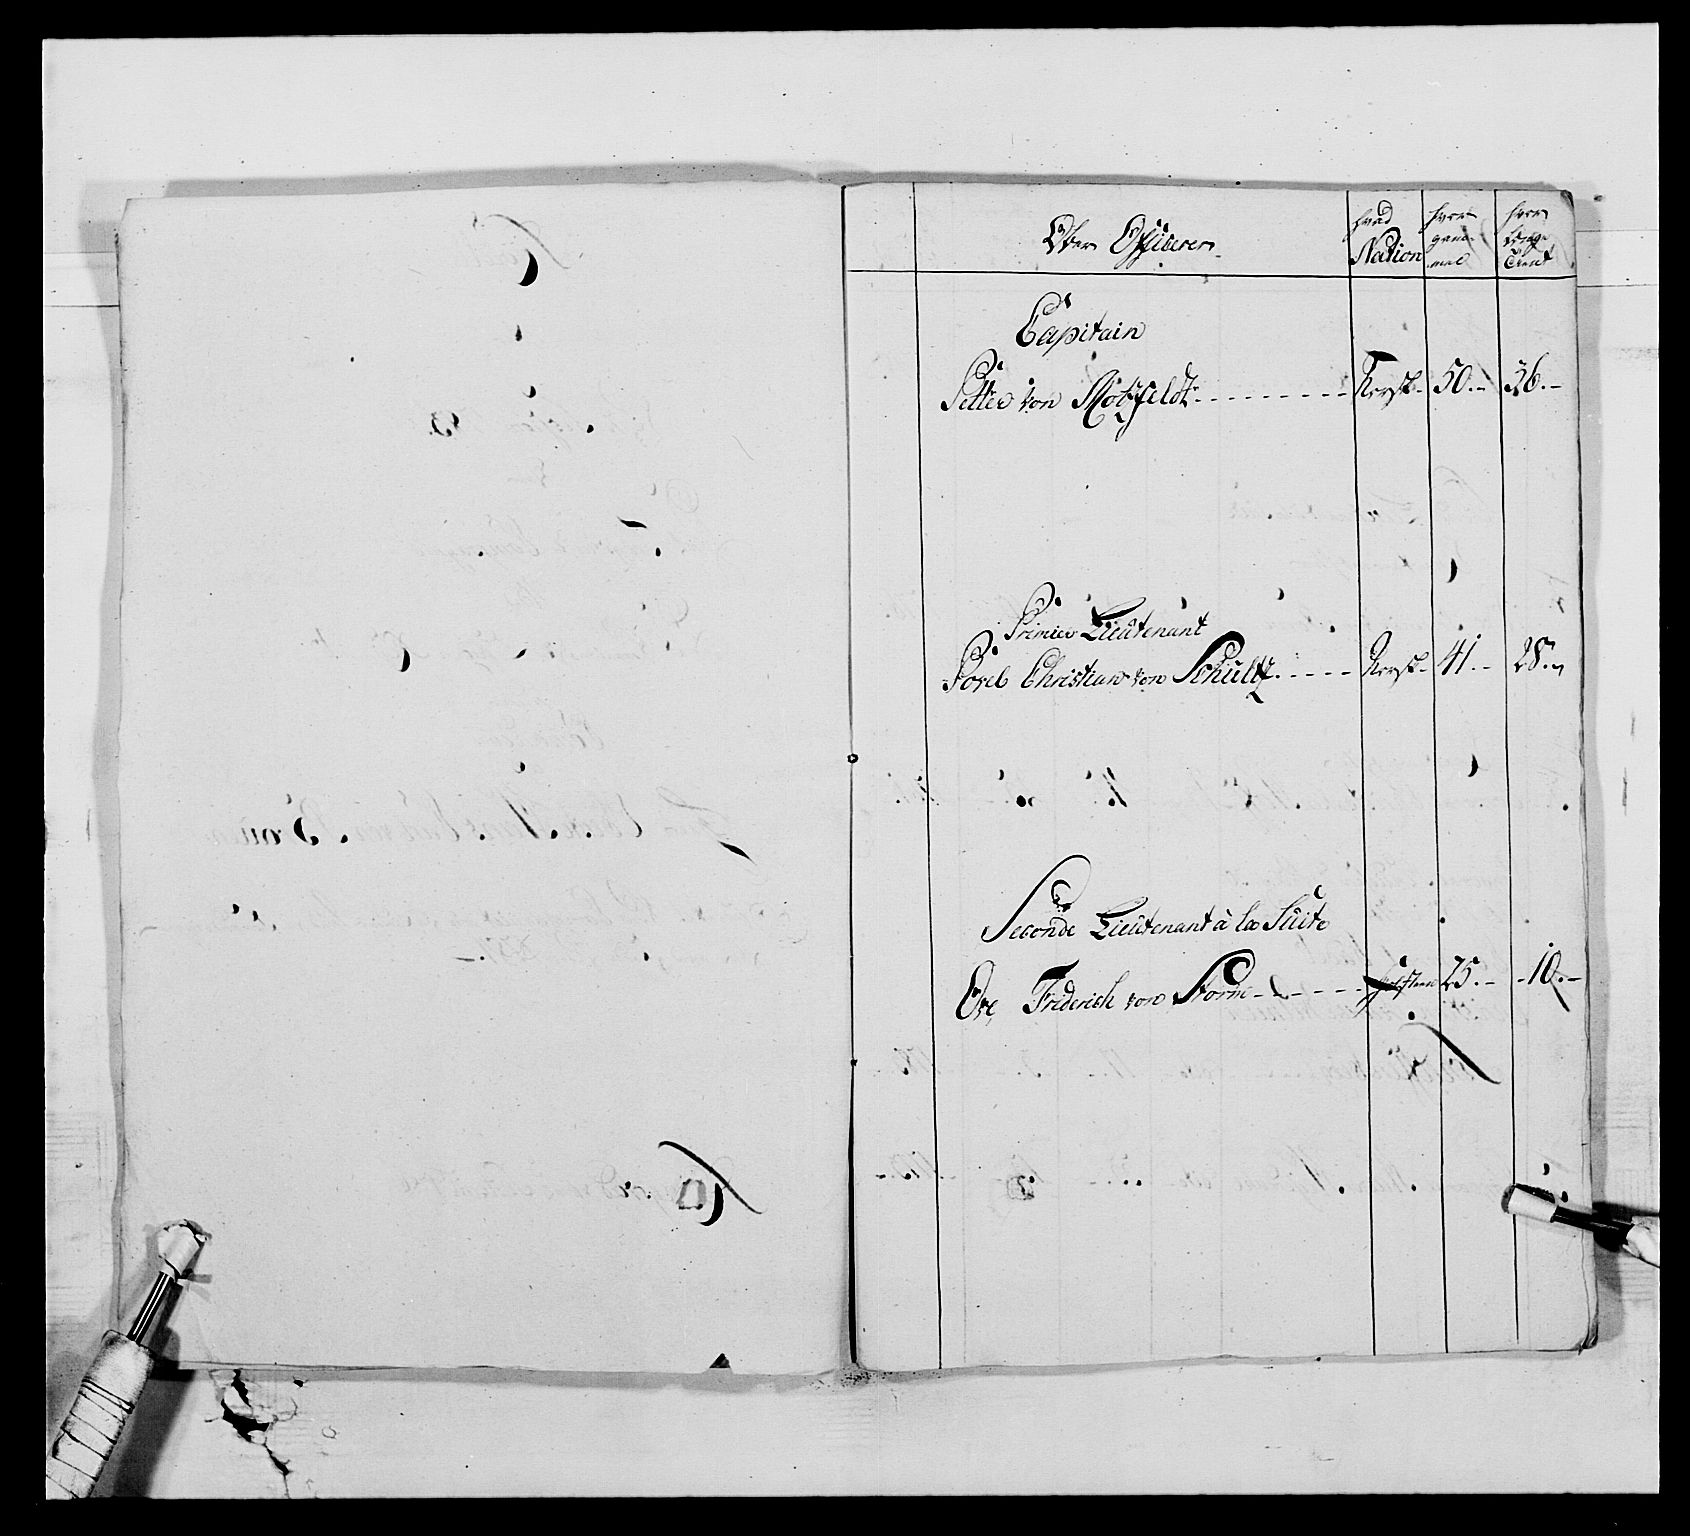 Ober Officerer
hvad Nation
hvor gam- mel
hvor længe tient
Capitain
Petter von Motzfeldt Norsk 50 36
Premier Lieutenant
Povel Christian von Schültz Norsk 41 28
Seconde Lieutenant à la Suite
Ove Friderich von Storm 25 10